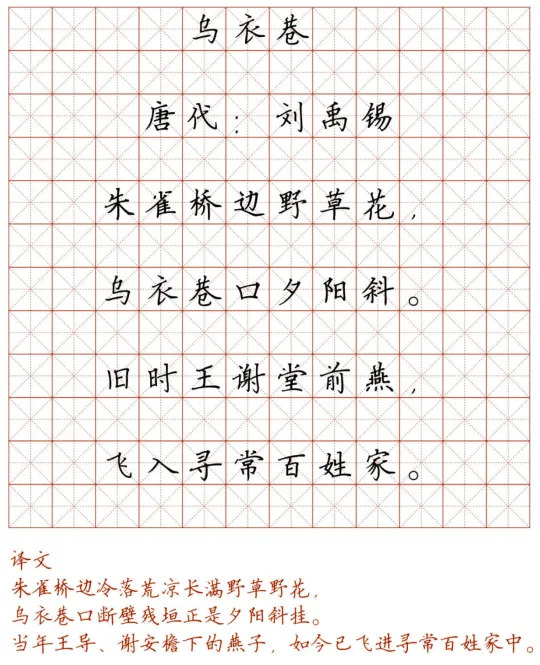 乌衣巷
唐代：刘禹锡
朱雀桥边野草花，
乌衣巷口夕阳斜。
旧时王谢堂前燕，
飞入寻常百姓家。
译文
朱雀桥边冷落荒凉长满野草野花，
乌衣巷口断壁残垣正是夕阳斜挂。
当年王导、谢安檐下的燕子，如今已飞进寻常百姓家中。